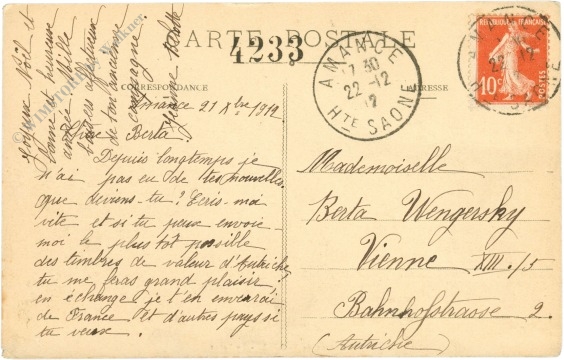 CARTE POSTALE
4233
CORRESPONDANCE
ADRESSE
AMANCE
17 30
22 - 12
12
HTE SAONE
RÉPUBLIQUE FRANÇAISE
10c
POSTES
Joyeux Noël et
bonne et heureuse
année. Mille
baisers affectueux
de ton lointain
compagne
Jeanne
21 Xbre 1912
Chère Berta
Depuis longtemps je
n'ai pas eu de tes nouvelles
que deviens-tu? Ecris-moi
vite et si tu peux envoie-
moi le plus tôt possible
des timbres de valeur d'Autriche,
tu me feras grand plaisir
en échange je t'en enverrai
de France et d'autres pays si
tu veux.
Mademoiselle
Berta Wengersky
Vienne XIII./5
Bahnhofstrasse 2.
(Autriche)